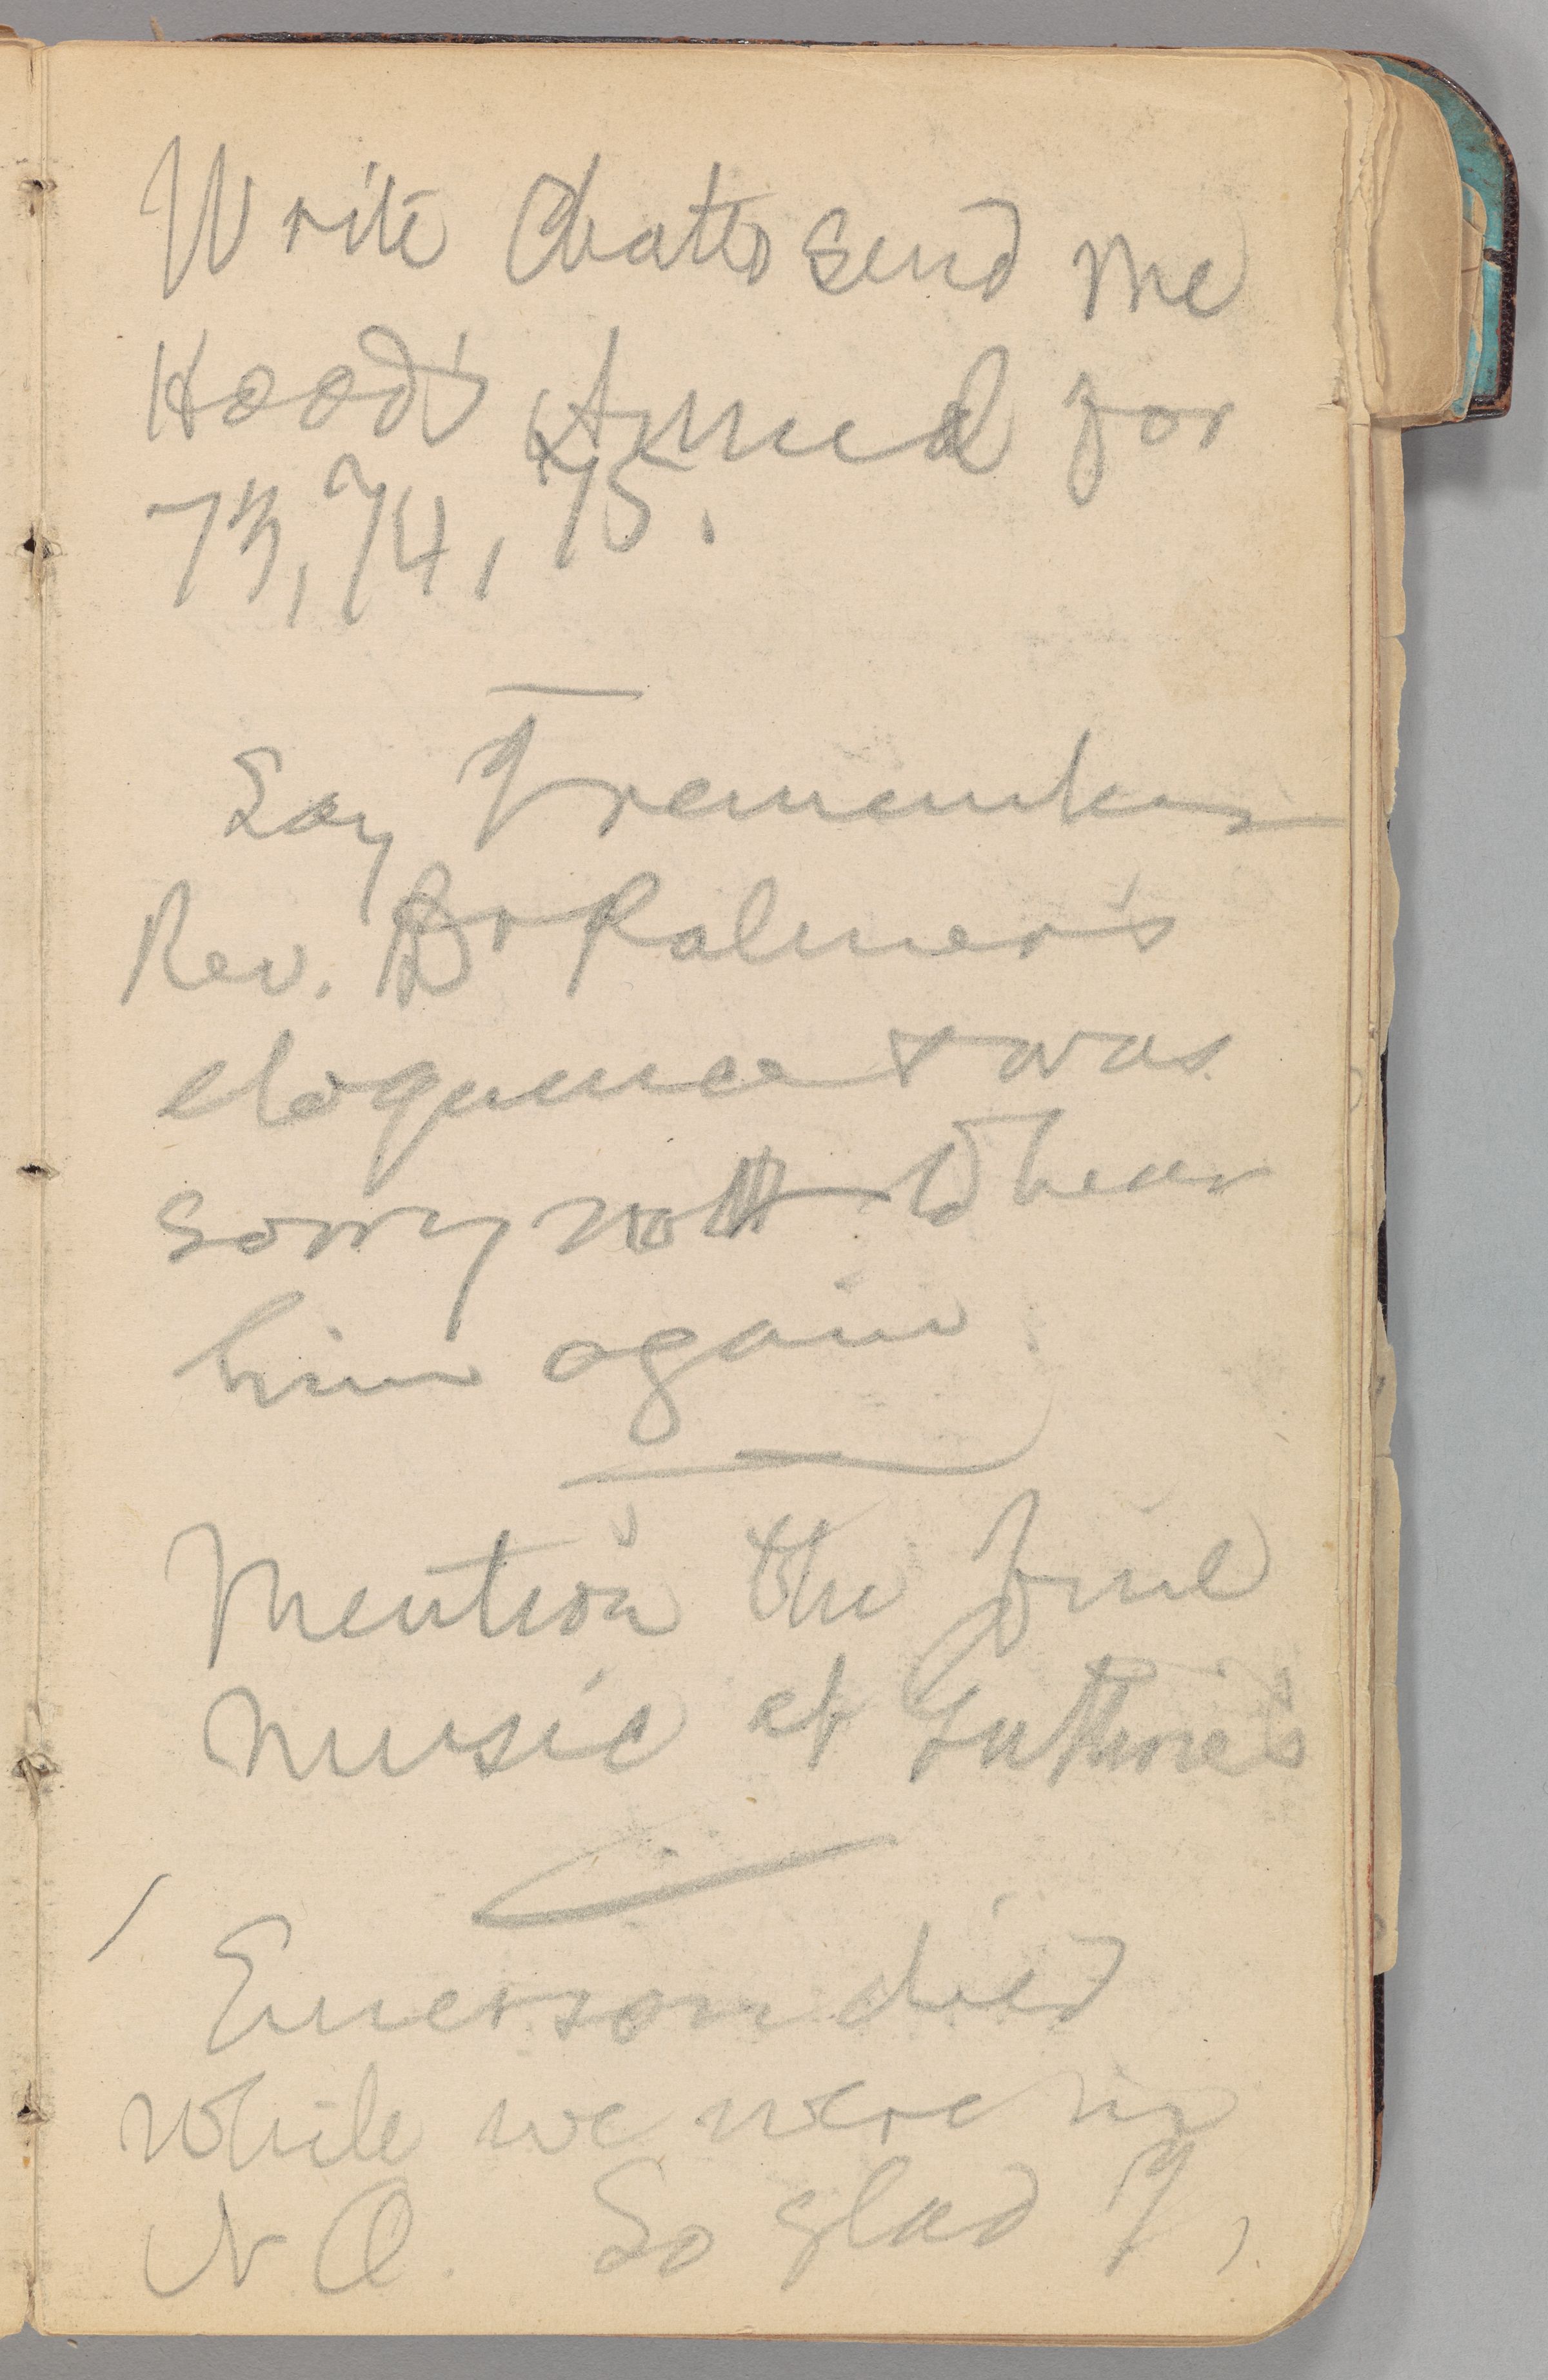 Write Chatto send me
Hood's Annual for
73, 74, 75.
Say I remember
Rev. Dr Palmer's
eloquence & was
sorry not to hear
him again.
Mention the fine
music at Guthrie's
Emerson died
while we were in
N O. So glad I,